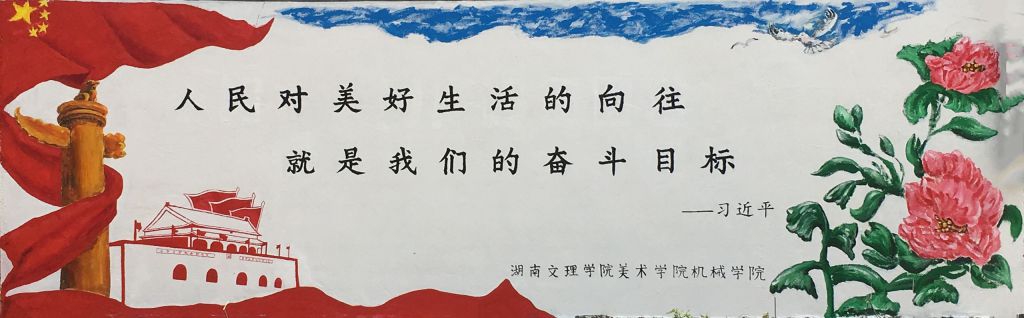 人民对美好生活的向往
就是我们的奋斗目标
——习近平
湖南文理学院美术学院机械学院